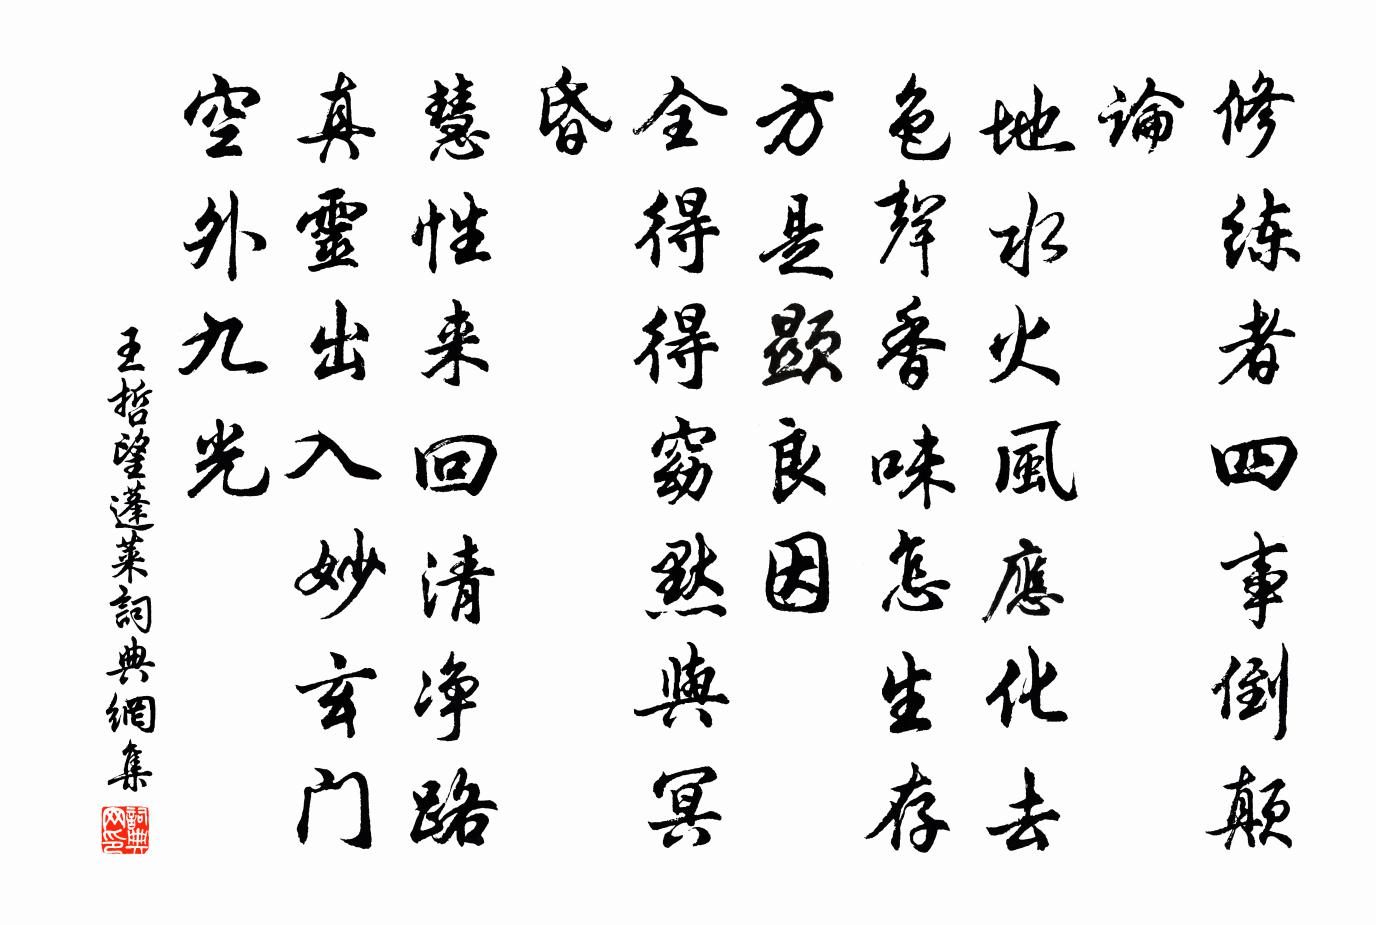 修练者四事倒颠
論
地水火風應化去
色聲香味怎生存
方是顯良因
全得得窈默與冥
昏
慧性来回清净路
真靈出入妙玄门
空外九光
王哲望蓬莱詞典網集
詞典网印